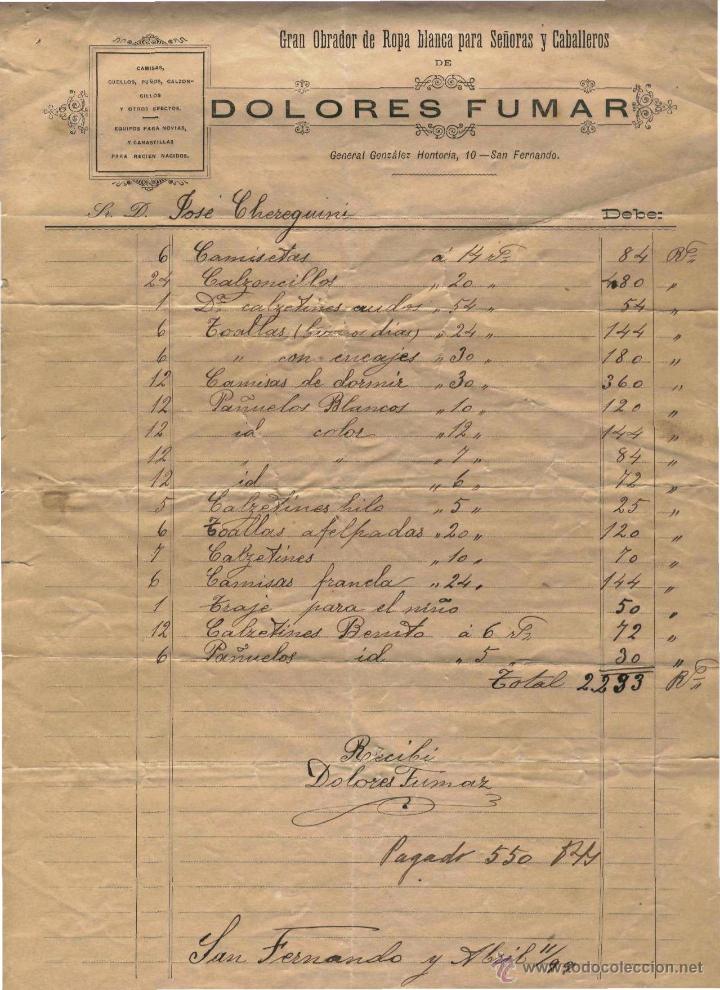 Gran Obrador de Ropa blanca para Señoras y Caballeros
DE
DOLORES FUMAR
General González Hontoria, 10—San Fernando.
CAMISAS,
CUELLOS, PUÑOS, CALZON-
CILLOS
Y OTROS EFECTOS.
EQUIPOS PARA NOVIAS,
Y CANASTILLAS
PARA RECIEN NACIDOS.
Sr. D. José Chereguini Debe:
6 Camisetas á 14 Rs 84 Rs
24 Calzoncillos " 20 " 480 "
1 Dna calzetines crudos " 54 " 54 "
6 Toallas (buenos dias) " 24 " 144 "
6 " con encajes " 30 " 180 "
12 Camisas de dormir " 30 " 360 "
12 Pañuelos Blancos " 10 " 120 "
12 id color " 12 " 144 "
12 " " " 7 " 84 "
12 id " 6 " 72 "
5 Calzetines hilo " 5 " 25 "
6 Toallas afelpadas " 20 " 120 "
7 Calzetines " 10 " 70 "
6 Camisas franela " 24 " 144 "
1 Traje para el niño 50 "
12 Calzetines Benito á 6 Rs 72 "
6 Pañuelos id " 5 " 30 "
Total 2.233 Rs
Recibi
Dolores Fumar
Pagado 550 Rs
San Fernando y Abril 11/
www.todocoleccion.net